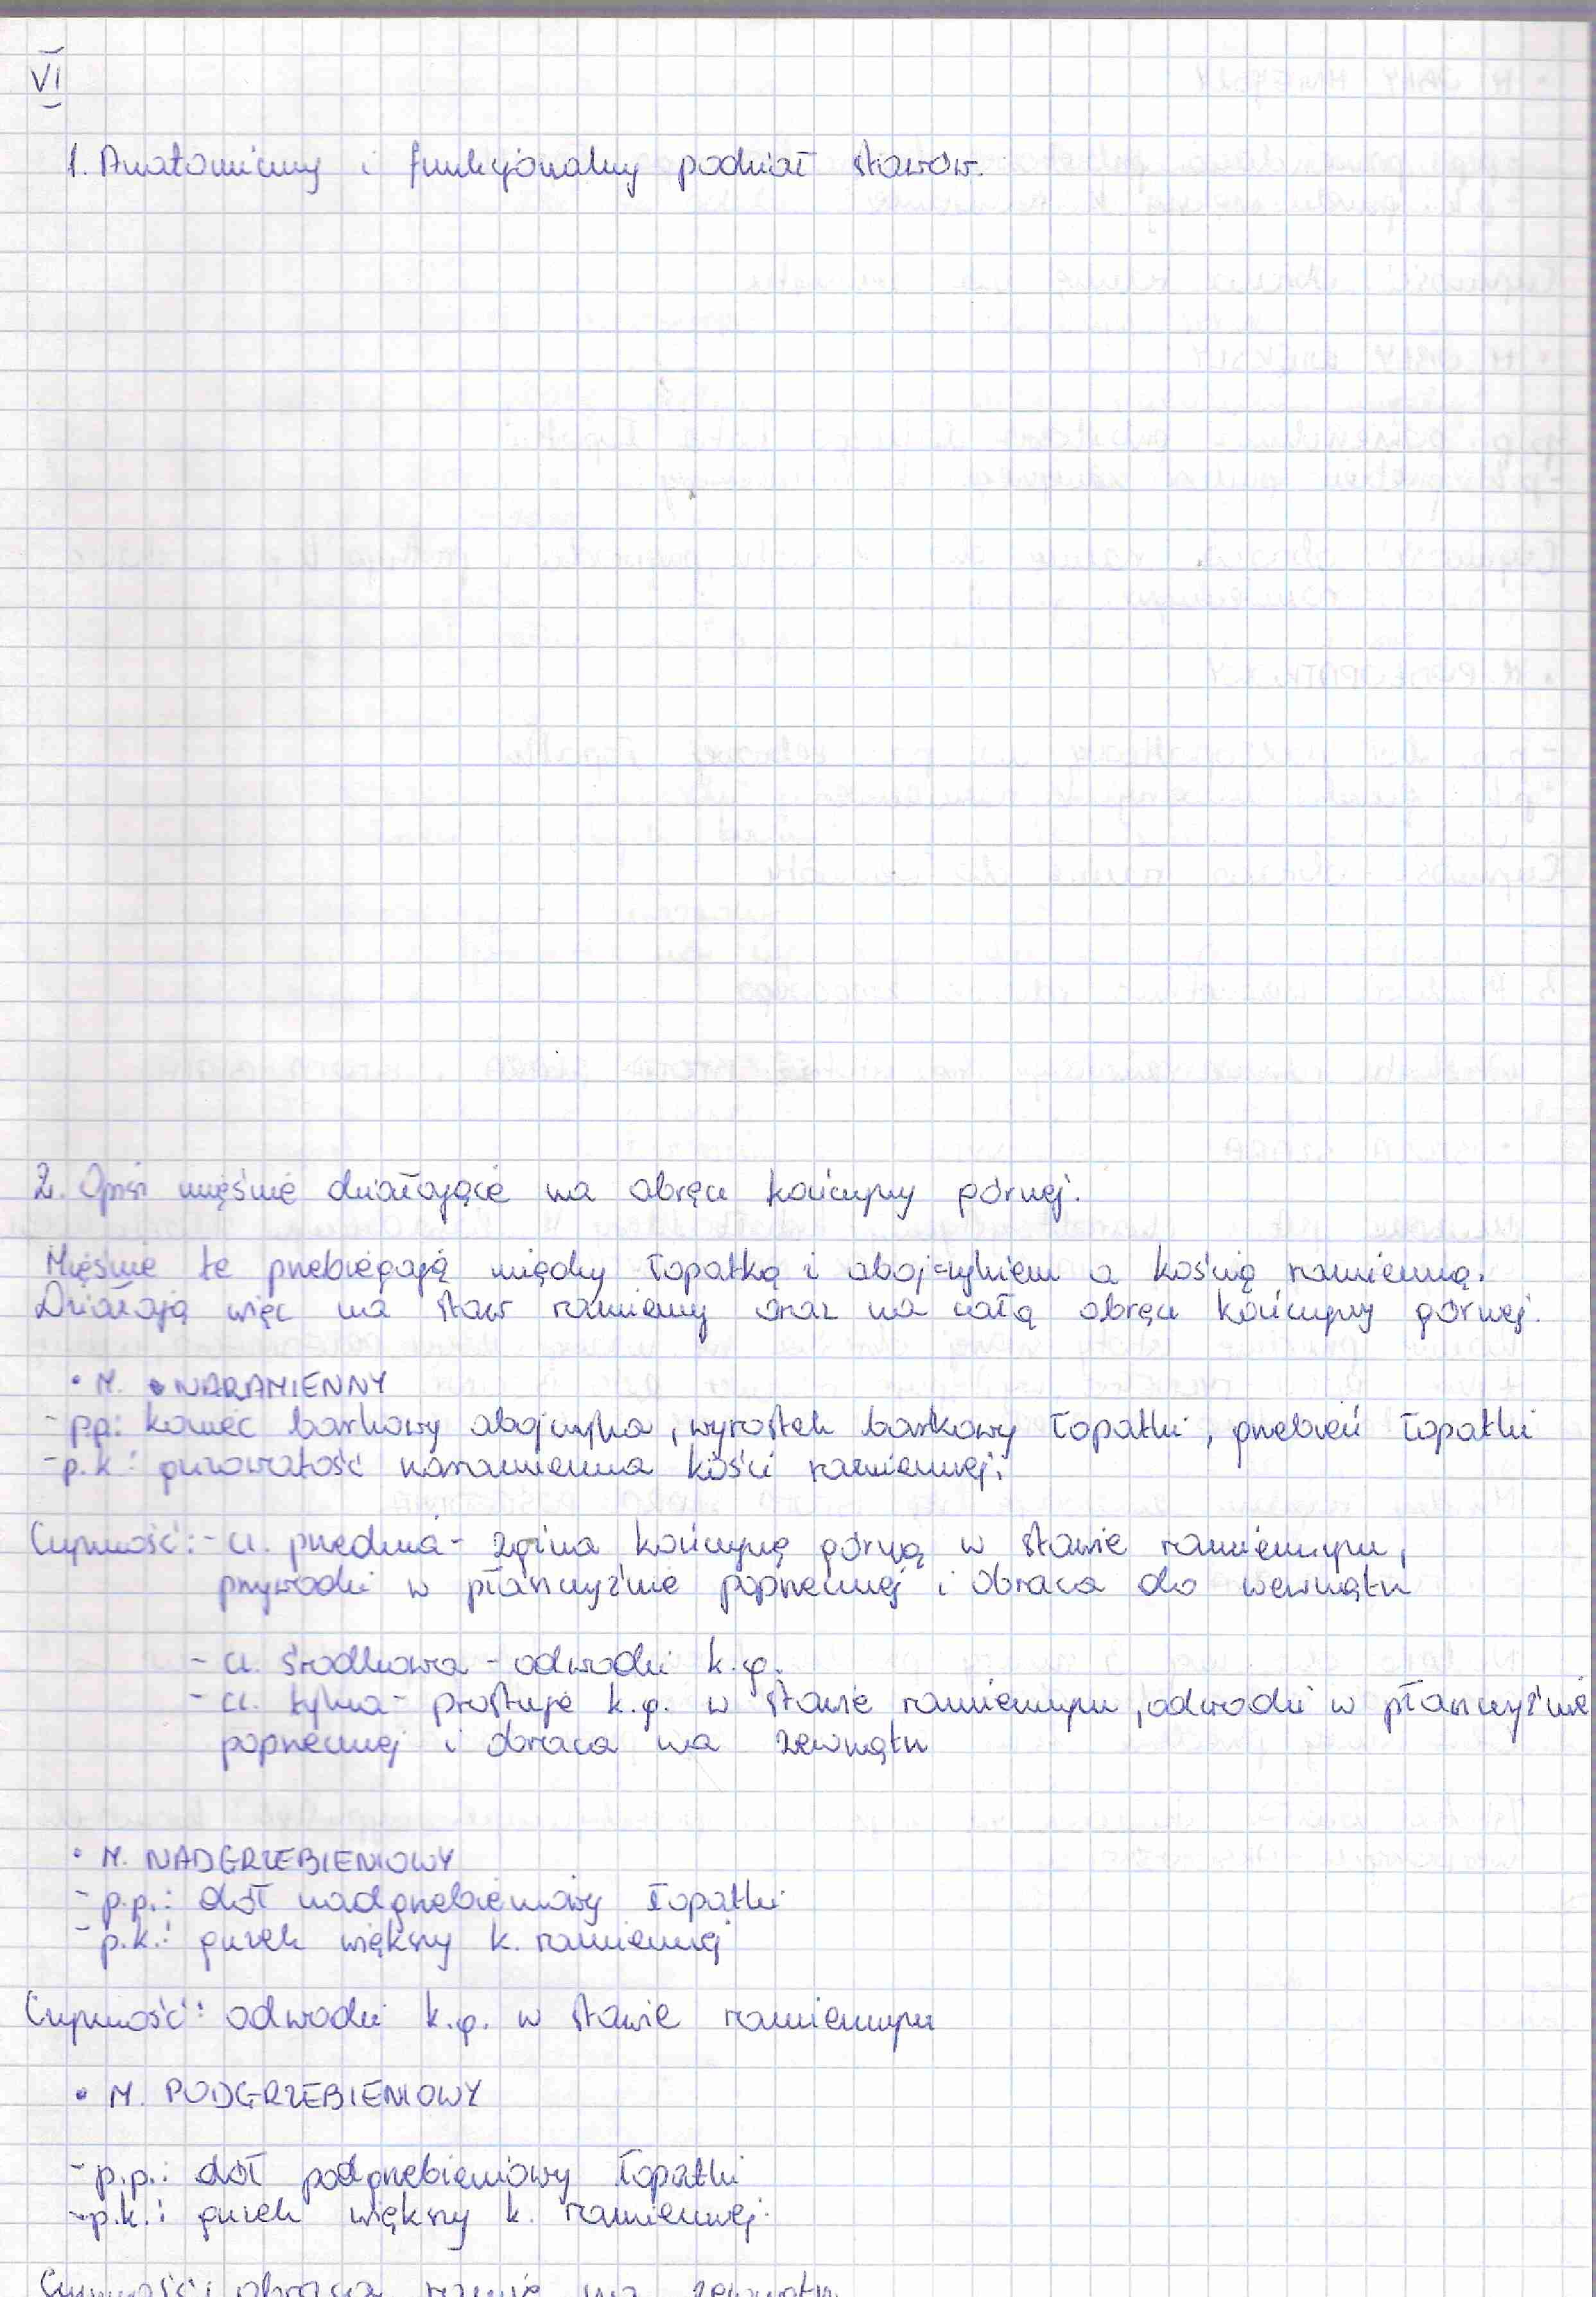 VI
1. Anatomiczny i funkcjonalny podział stawów.
2. Opisz mięśnie działające na obręcz kończyny górnej.
Mięśnie te przebiegają między łopatką i obojczykiem a kością ramienną.
Działają więc na staw ramienny oraz na całą obręcz kończyny górnej.
• M. NARAMIENNY
- p.p: koniec barkowy obojczyka, wyrostek barkowy łopatki, grzebień łopatki
- p.k: guzowatość naramienna kości ramiennej.
Czynność: - cz. przednia - zgina kończynę górną w stawie ramiennym,
przywodzi w płaszczyźnie poprzecznej i obraca do wewnątrz
- cz. środkowa - odwodzi k.g.
- cz. tylna - prostuje k.g. w stawie ramiennym, odwodzi w płaszczyźnie
poprzecznej i obraca na zewnątrz
• M. NADGRZEBIENIOWY
- p.p.: dół nadgrzebieniowy łopatki
- p.k.: guzek większy k. ramiennej
Czynność: odwodzi k.g. w stawie ramiennym
• M. PODGRZEBIENIOWY
- p.p.: dół podgrzebieniowy łopatki
- p.k.: guzek większy k. ramiennej.
Czynność: obraca ramię na zewnątrz